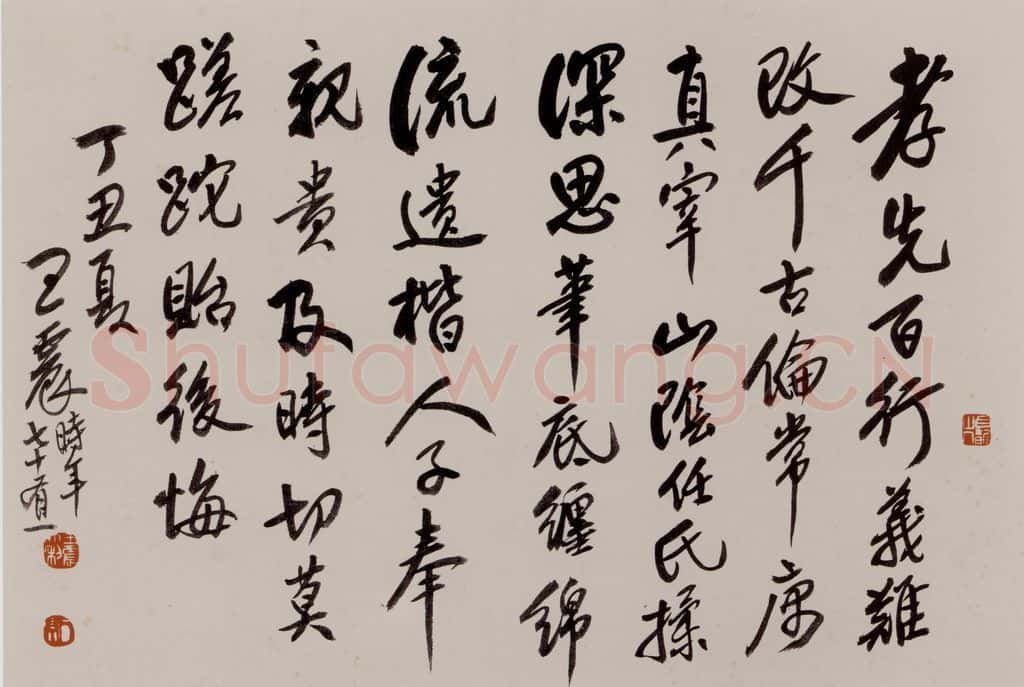 孝先百行義難
改千古倫常属
真宰山陰任氏操
深思筆底纏綿
流遺楷人子奉
親貴及時切莫
蹉跎貽後悔
丁丑夏
王震時年
七十有一
Shufawang.CN